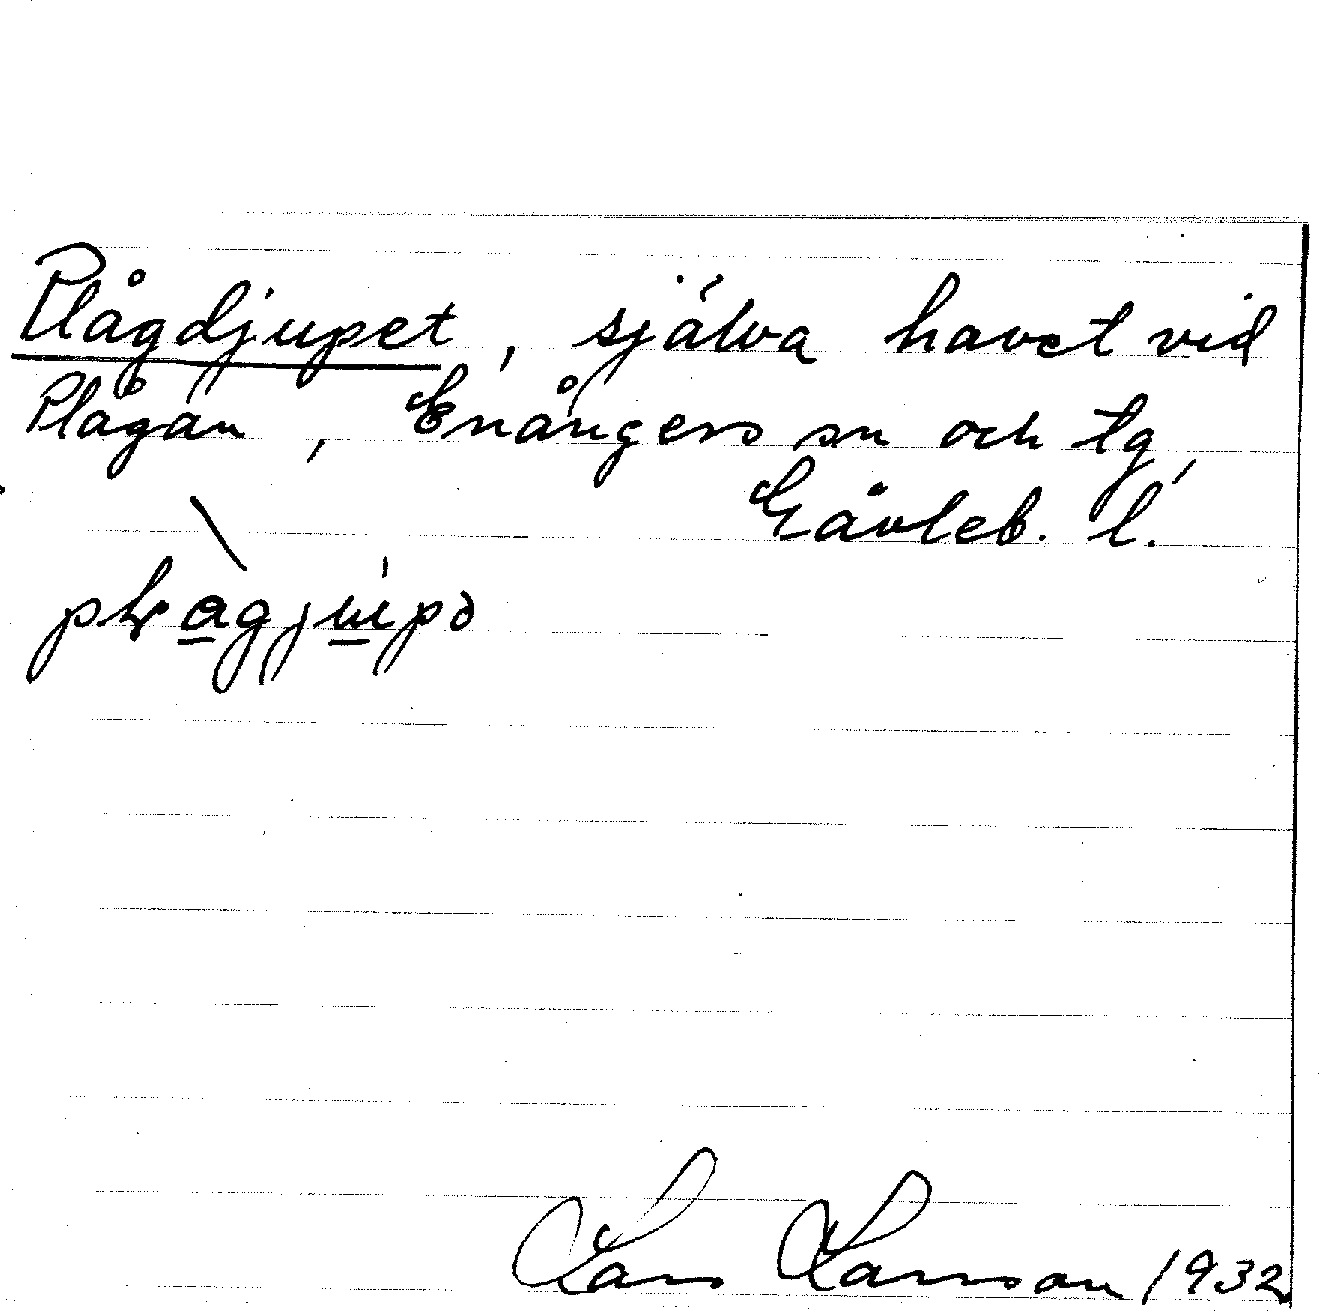 Plågdjupet, själva havet vid
Plågan, Enångers sn och tg,
Gävleb. l.
Lars Larsson 1932